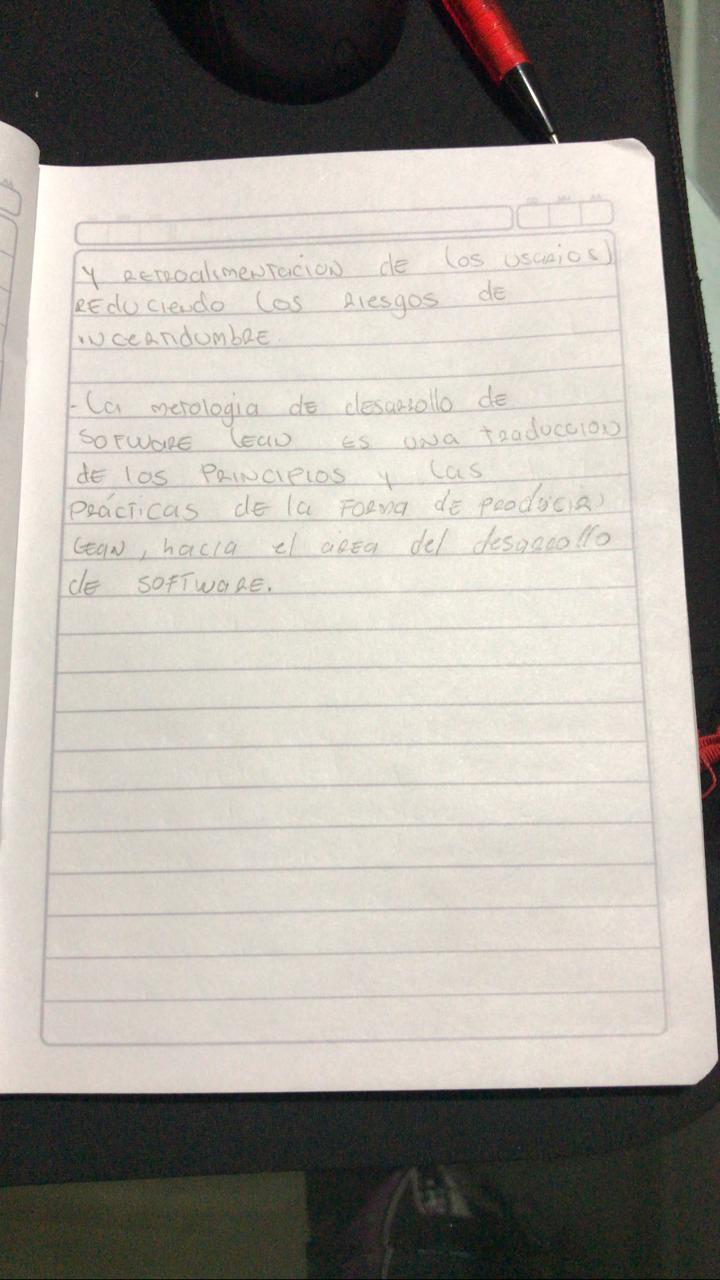 y retroalimentacion de los usuarios)
reduciendo los riesgos de
incertidumbre.
- La metologia de desarrollo de
software lean es una traduccion
de los principios y las
prácticas de la forma de producir
lean, hacia el área del desarrollo
de software.